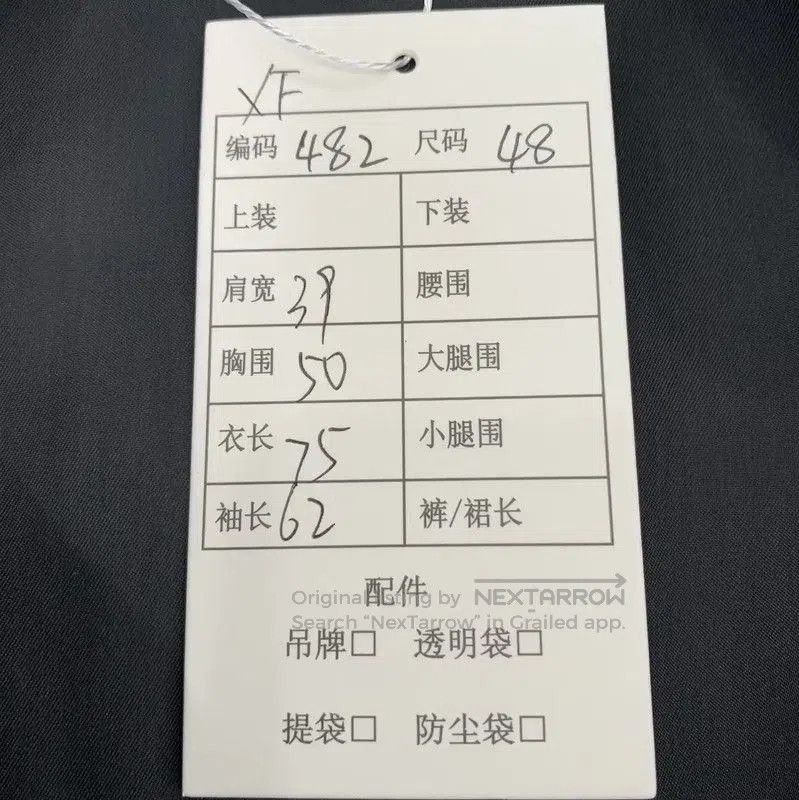 XF
编码 482 尺码 48
上装 下装
肩宽 39 腰围
胸围 50 大腿围
衣长 75 小腿围
袖长 62 裤/裙长
配件
Original listing by NEXTARROW
Search "NexTarrow" in Grailed app.
吊牌□ 透明袋□
提袋□ 防尘袋□